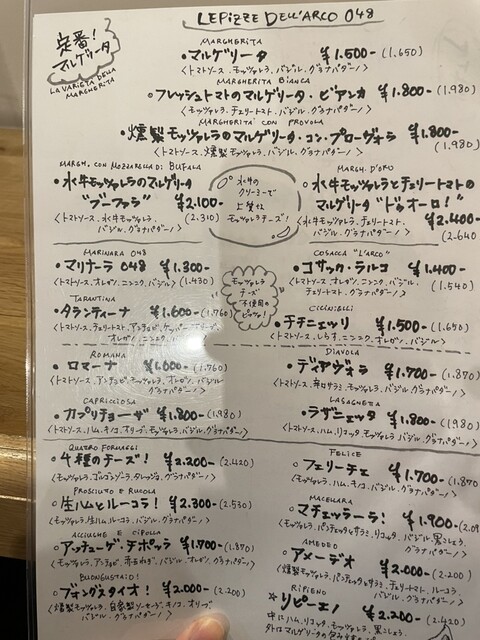 LEPIZZE DELL'ARCO 048
定番!
マルゲリータ
LA VARIETA DELLA
MARGHERITA
MARGHERITA
・マルゲリータ ¥1.500-(1.650)
<トマトソース、モッツァレラ、バジル、グラナパダーノ>
MARGHERITA BIANCA
・フレッシュトマトのマルゲリータ・ビアンカ ¥1.800-(1.980)
<モッツァレラ、チェリートマト、バジル、グラナパダーノ>
MARGHERITA CON PROVOLA
・燻製モッツァレラのマルゲリータ・コン・プローヴォラ ¥1.800-
(1.980)
<トマトソース、燻製モッツァレラ、バジル、グラナパダーノ>
MARGH. CON MOZZARELLA DI BUFALA
・水牛モッツァレラのマルゲリータ
"ブーファラ" ¥2.100-
(2.310)
<トマトソース、水牛モッツァレラ、
バジル、グラナパダーノ>
水牛の
クリーミーで
上質な
モッツァレラチーズ!
MARGH. D'ORO
・水牛モッツァレラとチェリートマトの
マルゲリータ "ドゥオーロ!"
¥2.400-
(2.640
<水牛モッツァレラ、チェリートマト、
バジル、グラナパダーノ>
MARINARA 048
・マリナーラ 048 ¥1.300-
(1.430)
<トマトソース、オレガノ、ニンニク、バジル>
モッツァレラ
チーズ
不使用の
ピッツァ!
COSACCA "L'ARCO"
・コサック・ラルコ ¥1.400-
(1.540)
<トマトソース、オレガノ、ニンニク、バジル、
チェリートマト、グラナパダーノ>
TARANTINA
・タランティーナ ¥1.600-(1.760)
<トマトソース、チェリートマト、アンチョビ、ケッパー、オリーブ、
オレガノ、ニンニク、バジル>
CICINIELLI
・チチニエッリ ¥1.500-(1.650)
<トマトソース、しらす、ニンニク、オレガノ、バジル>
ROMANA
・ロマーナ ¥1.600-(1.760)
<トマトソース、アンチョビ、モッツァレラ、オレガノ、バジル、グラナパダーノ>
DIAVOLA
・ディアヴォラ ¥1.700-(1.870)
<トマトソース、辛口サラミ、モッツァレラ、バジル、グラナパダーノ>
CAPRICCIOSA
・カプリチョーザ ¥1.800-(1.980)
<トマトソース、ハム、キノコ、オリーブ、モッツァレラ、バジル、グラナパダーノ>
LASAGNETTA
・ラザニエッタ ¥1.800-(1.980)
<トマトソース、ハム、リコッタ、モッツァレラ、バジル、グラナパダーノ>
QUATRO FORMAGGI
○4種のチーズ! ¥2.200-(2.420)
<モッツァレラ、ゴルゴンゾーラ、タレッジョ、グラナパダーノ>
FELICE
・フェリーチェ ¥1.700-(1.870
<モッツァレラ、ハム、キノコ、バジル、グラナパダーノ>
PROSCIUTTO E RUCOLA
○生ハムとルーコラ! ¥2.300-(2.530)
<モッツァレラ、生ハム、ルーコラ、バジル、グラナパダーノ>
MACELLARA
・マチェッラーラ! ¥1.900-(2.09
<モッツァレラ、パンチェッタとサラミ、リコッタ、バジル、黒こしょう
グラナパダーノ>
ACCIUGHE E CIPOLLA
○アッチューゲ・チポッラ ¥1.700-(1.870)
<モッツァレラ、アンチョビ、赤玉ねぎ、バジル、オレガノ、グラナパダーノ>
AMEDEO
・アメーデオ ¥2.000-(2.200)
<燻製モッツァレラ、パンチェッタとサラミ、チェリートマト、ルーコラ、
バジル、グラナパダーノ>
BUONGUSTAIO!
○ブォングスタイオ! ¥2.000-(2.200)
<燻製モッツァレラ、自家製ソーセージ、キノコ、オリーブ
バジル、グラナパダーノ>
RIPIENO
☆リピエーノ ¥2.200-(2.420)
中にハム、リコッタ、モッツァレラ、黒こしょう
外は